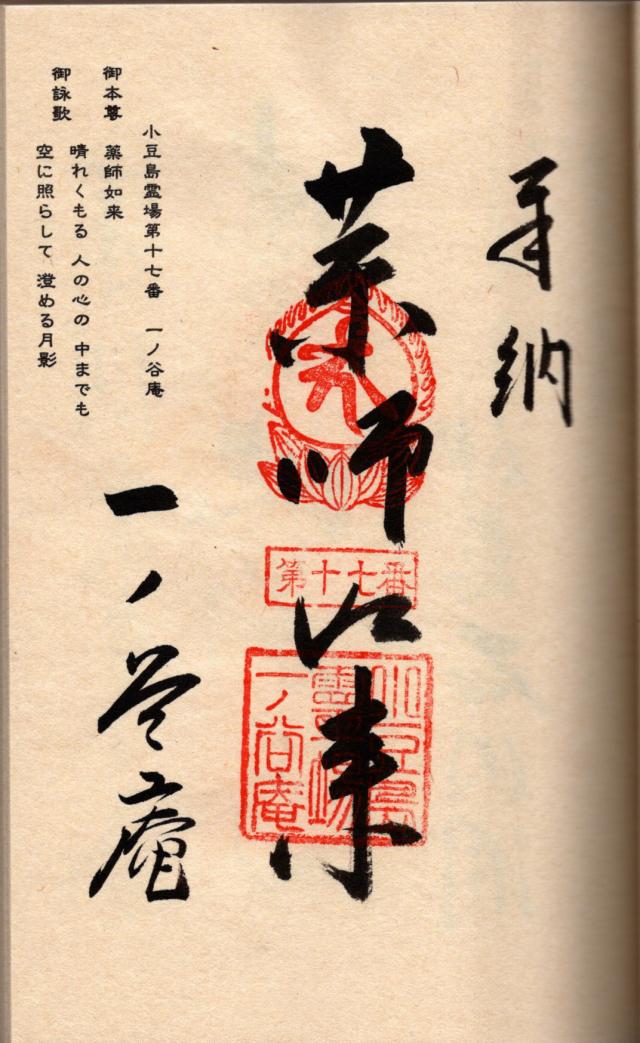 奉納
薬師如来
第十七番
小豆島
霊場
一ノ谷庵
一ノ谷庵
小豆島霊場第十七番 一ノ谷庵
御本尊 薬師如来
御詠歌 晴れくもる 人の心の 中までも
空に照らして 澄める月影